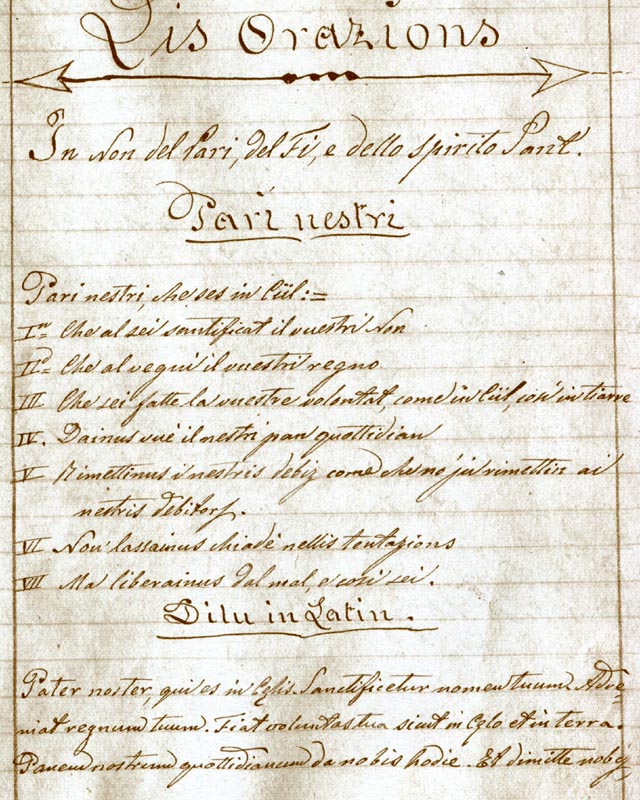 Lis Orazions
In Non del Pari, del Fi, e dello spirito Sant.
Pari nestri
Pari nestri, che ses in Ciil:=
I.n Che al sei santificat il vuestri Non
II.o Che al vegni il vuestri regno
III Che sei fatte la vuestre volontat, come in Ciil, così in tiarre
IV. Dainus vuè il nestri pan quottidian
V Rimettinus i nestris debiz come che no' ju rimettin ai
nestris debitors.
VI Non lassainus chiadè nellis tentazions
VII Ma liberainus dal mal, e così sei.
Dilu in Latin.
Pater noster, qui es in Cęlis. Sanctificetur nomen tuum. Adve=
niat regnum tuum. Fiat voluntas tua sicut in Cęlo et in terra.
Panem nostrum quottidianum da nobis hodie. Et dimitte nobis